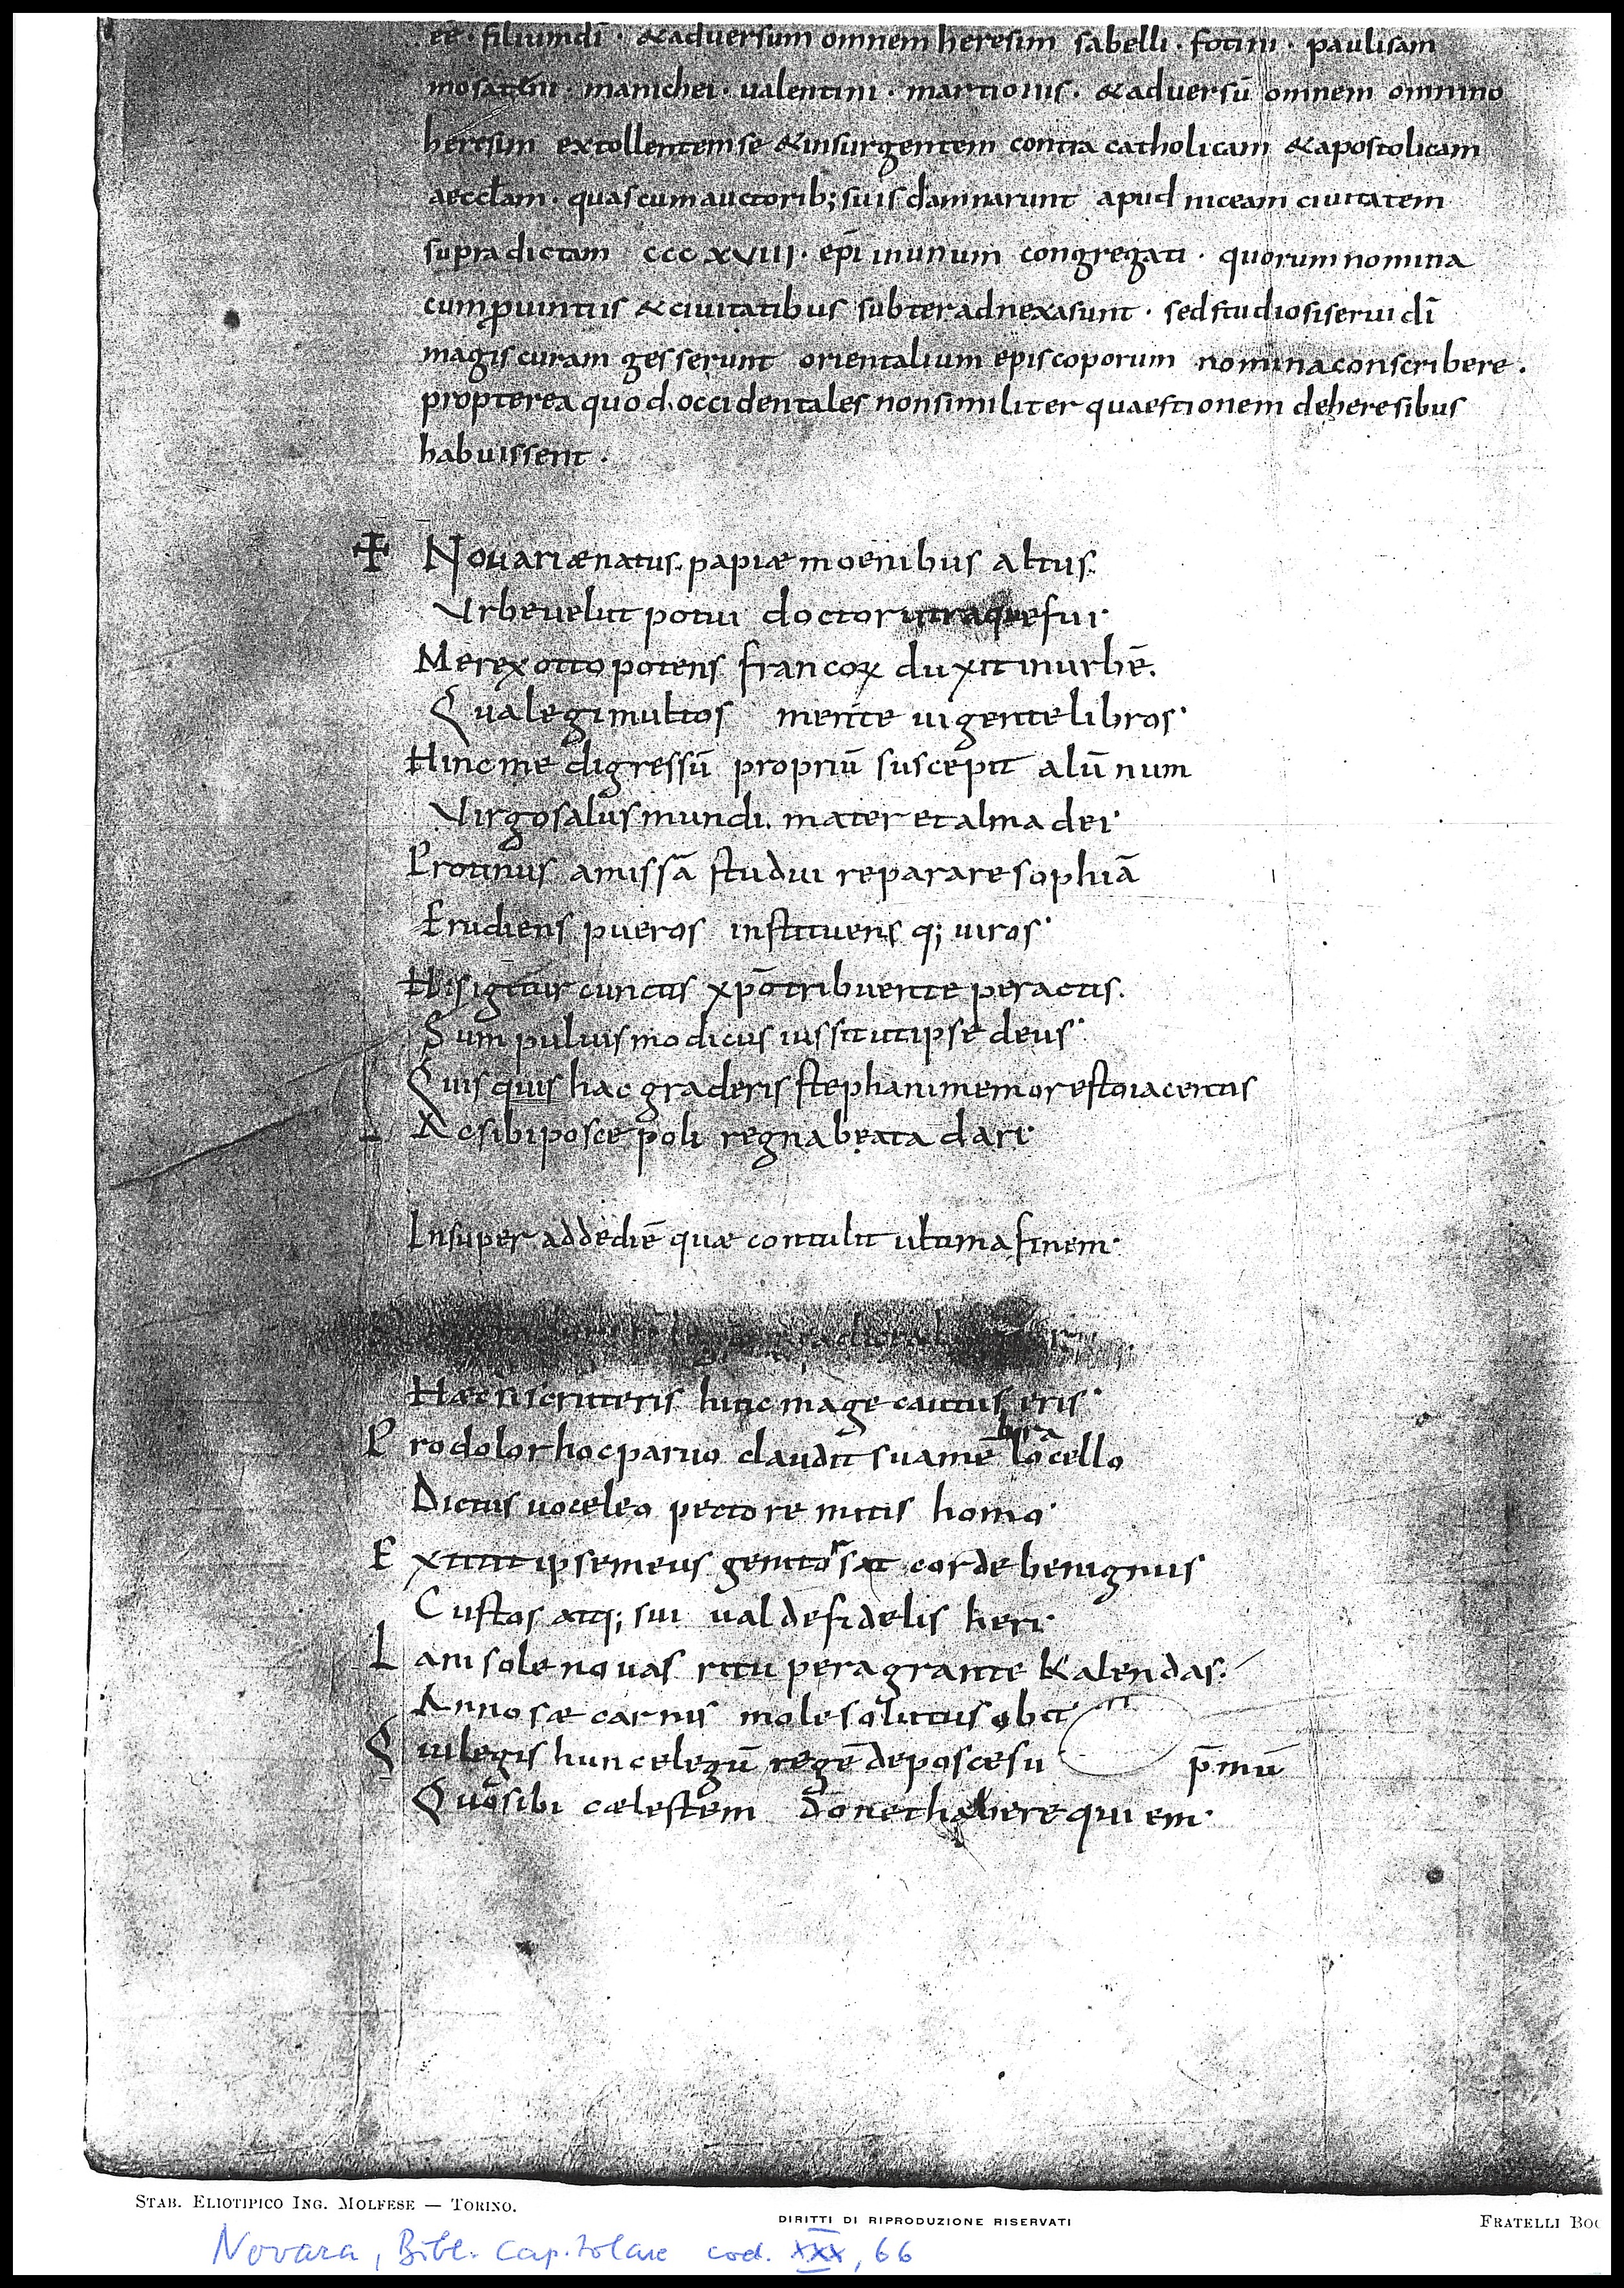 eē · filiumdī · &adversum omnem heresim sabelli · fotini · paulisam
mosateni · manichei · valentini · martionis · &adversū omnem omnino
heresim extollentemse &insurgentem contra catholicam &apostolicam
aecclam · quascumauctorib; suis damnarunt apud niceam civitatem
supradictam CCCXVIII · epī inunum congregati · quorumnomina
cumꝓvintiis &civitatibus subteradnexasunt · sedstudiosiservi dī
magiscuram gesserunt orientalium episcoporum nominaconscribere .
proptereaquod occidentales nonsimiliter quaestionem deheresibus
habuissent .
✠ Novariænatus. papiæmoenibus altus.
Urbevelut potui doctorutraquefui·
Merexotto potens francoꝝ duxitinurbē.
Qualegimultos mente vigentelibros·
Hincme digressū propriū suscepit alūnum
Virgosalusmundi. mater etalma dei·
Protinus amissā studui reparare sophiā
Erudiens pueros instituens q; viros·
Hisigitur cunctis xp̄otribuente peractis.
Sum pulvismodicus iussitutipse deus·
Quisquis hac graderis stephanimemorestoiacentis
Acsibiposce poli regnabeata dari·
Insuper addediē quæ contulit ultimafinem·
Hæcnicriteris hincmage cautus eris·
Prodolorhocparvo claudit suamē bra locello
Dictus voceleo pectore mitis homo·
Extitit ipsemeus genitor sat corde benignus·
Custos atq; sui valdefidelis heri·
Iamsolenovas ritu peragrante kalendas.
Annosæ carnis molesolutus obit·
Quilegis huncelegū regē deposcesu p̄mū
Quosibi cælestem donethabere quiem·
STAB. ELIOTIPICO ING. MOLFESE — TORINO.
DIRITTI DI RIPRODUZIONE RISERVATI
FRATELLI BOC
Novara, Bibl. Capitolare cod. XXX, 66